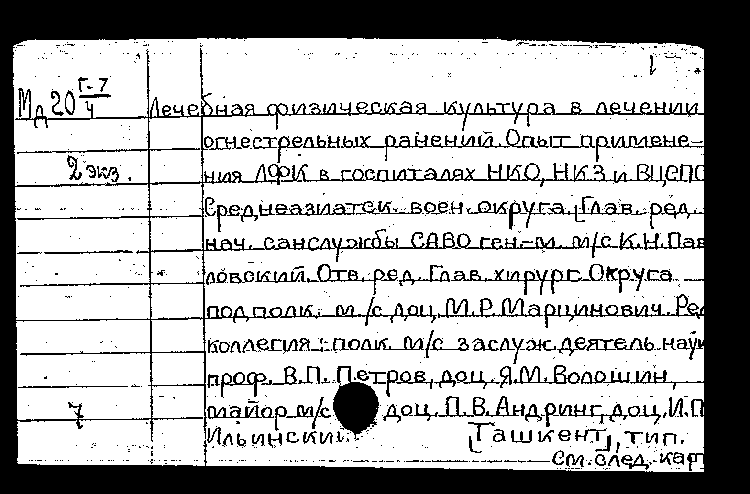 Мд 20 Г-7/4 Лечебная физическая культура в лечении
огнестрельных ранений. Опыт примене-
2 экз. ния ЛФК в госпиталях НКО, НКЗ и ВЦСПС
Среднеазиатск. воен. округа. [Глав. ред.
нач. санслужбы САВО ген.-м. м/с К.Н. Пав
ловский. Отв. ред. Глав. хирург Округа
подполк. м/с доц. М.Р. Марцинович. Ред
коллегия: полк. м/с заслуж. деятель наук
проф. В.П. Петров, доц. Я.М. Волошин,
7 майор м/с доц. П.В. Андринг, доц. И.П
Ильинский.
[Ташкент], тип.
см. след. карт